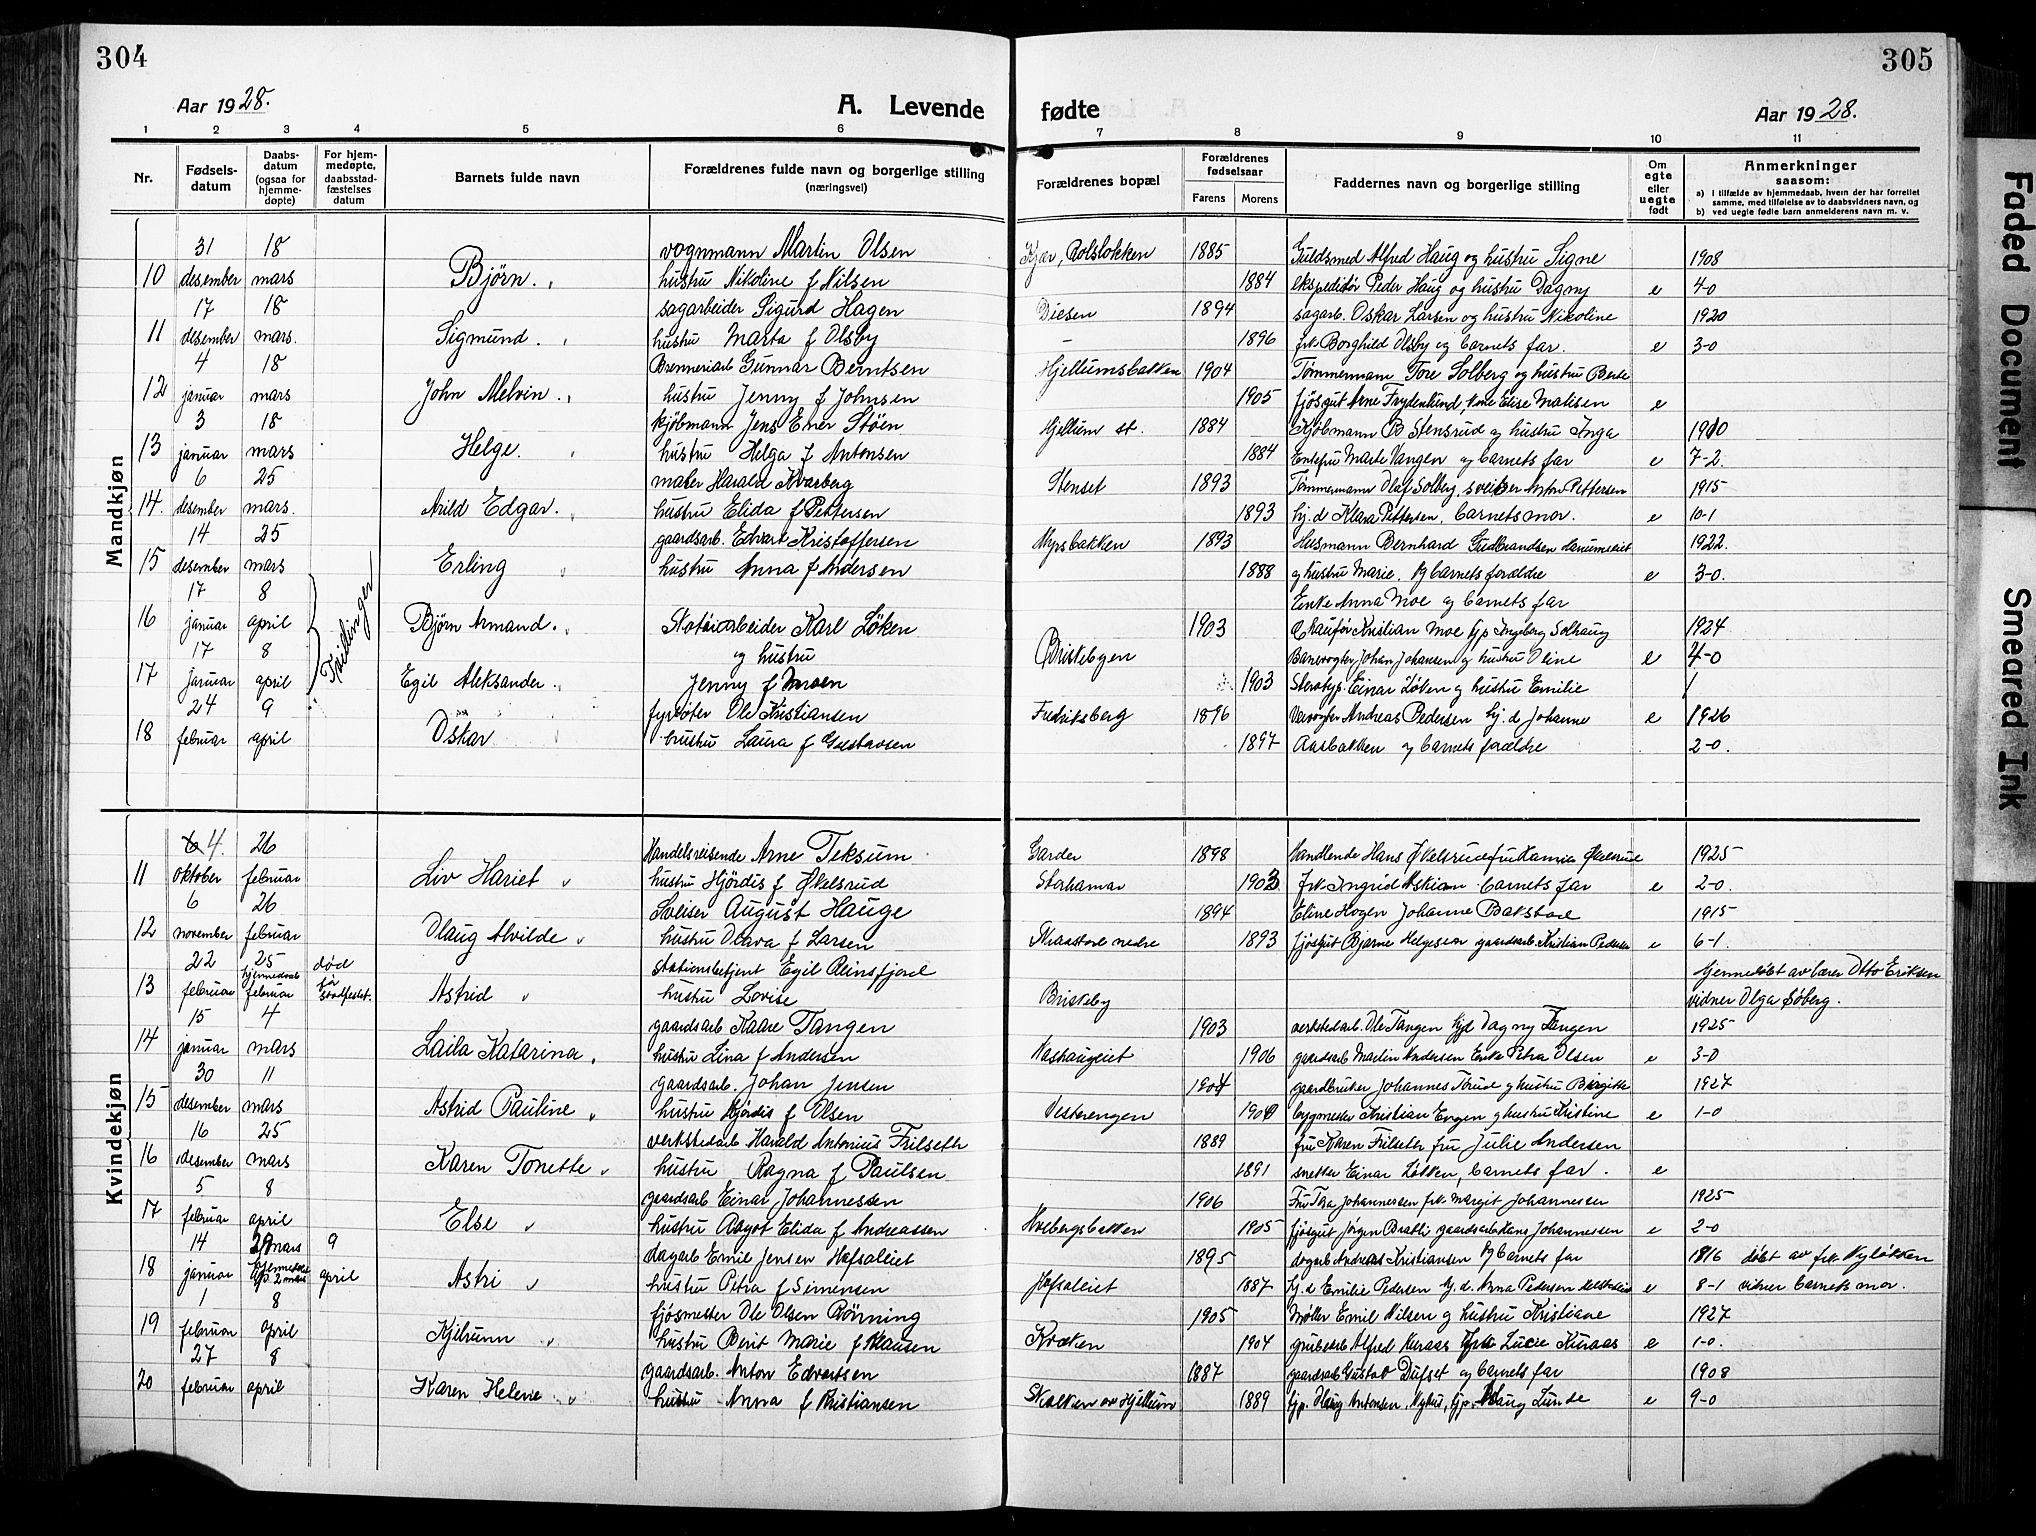 304
305
Aar 1928.
A. Levende
fødte
Aar 1928.
1 2 3 4 5 6 7 8 9 10 11
Nr.
Fødsels-
datum
Daabs-
datum
(ogsaa for
hjemme-
døpte)
For hjem-
medøpte,
daabsstad-
fæstelses
datum
Barnets fulde navn
Forældrenes fulde navn og borgerlige stilling
(næringsvei)
Forældrenes bopæl
Forældrenes
fødselsaar
Farens Morens
Faddernes navn og borgerlige stilling
Om
egte
eller
uegte
født
Anmerkninger
saasom:
a) i tilfælde av hjemmedaab, hvem der har forrettet
samme, med tilføielse av to daabsvidners navn, og
b) ved uegte fødte barn anmelderens navn m. v.
Mandkjøn
31 18 vognmann Martin Olsen Kjær, Rolsløkken 1885 Guldsmed Alfred Haug og hustru Signe 1908
10 desember mars Bjørn. hustru Nikoline f Nilsen 1884 ekspeditør Peder Haug og hustru Dagny e 4-0
17 18 sagarbeider Sigurd Hagen Diesen 1894 sagarb. Oskar Larsen og hustru Nikoline 1920
11 desember mars. Sigmund. hustru Marta f Olsby 1896 frk. Borghild Olsby og barnets far. e 3-0
4 18 Brenneriarb Gunnar Berntsen Hjellumsbakken 1904 Tømmermann Tore Solberg og hustru Berte
12 januar mars John Melvin. hustru Jenny f Johnsen 1905 fjøsgut Arne Frydenlund, Elise Matisen e
3 18 kjøbmann Jens Ener Støen Hjellum st. 1884 Kjøbmann B Stensrud og hustru Inga 1910
13 januar mars Helge. hustru Helga f Antonsen 1884 Enkefru Marte Vangen og barnets far e 7-2.
6 25 maler Harald Kvarberg Stenset 1893 Tømmermann Olaf Solberg, sveitser Anton Pettersen 1915
14. desember mars. Arild Edgar. hustru Elida f Pettersen 1893 hj. d Klara Pettersen, barnets mor. e 10-1
14 25 gaardsarb. Edvart Kristoffersen Myrsbakken 1893 Husmann Bernhard Gudbrandsen 1922.
15 desember mars Erling hustru Anna f Andersen 1888 og hustru Marie. og barnets forældre e 3-0.
17 8 Tvillinger Enke Anna Moe og barnets far
16 januar april Bjørn Armand. Karl Løken 1903 Chauffør Kristian Moe hjp Ingeborg Solhaug 1924
17 8 og hustru Briskebyen Banevogter Johan Johansen og hustru Oline e 4-0
17 januar april Egil Aleksander. Jenny f Moen 1903 Einar Løken og hustru Emilie
24 9 fyrbøter Ole Kristiansen Fredriksberg 1896 Andreas Pedersen hj. d Johanne e 1926
18 februar april Oskar hustru Laura f Gustavsen 1897 Aasbakken og barnets forældre 2-0
Kvindekjøn
4. 26 Handelsreisende Arne Teksum Garder 1898 Handlende Hans Økelsrud fru Økelsrud 1925
11 oktober februar Liv Hariet hustru Hjørdis f Økelsrud Storhamar 1903 frk Ingrid barnets far e 2-0.
6 26 August Hauge 1894 Eline Hogen Johanne Bakstad 1915
12 november februar Olaug Alvilde hustru Olava f Larsen nedre 1893 fjøsgut Bjarne Helgesen gaardsarb. Kristian Pedersen e 6-1
22 25 død stationsbetjent Egil Reinsfjord Hjemmedøbt av lærer Otto Eriksen
13 februar hjemmedøpt februar før stadfestet. Astrid hustru Lovise Briskeby vidner Olga Søberg.
15 4 gaardsarb Kaare Tangen 1903 verkstedarb. Ole Tangen hjp Dagny Tangen 1925
14 januar mars Laila Katarina. hustru Lina f Andersen 1906 gaardsarb Martin Andersen Enke Petra Olsen e 3-0
30 11 gaardsarb. Johan Jensen 1904 gaardbruker Johannes Torud og hustru Birgitte 1927
15 desember mars Astrid Pauline hustru Hjørdis f Olsen Vesterengen bygmester Kristian Engen og hustru Kristine e 1-0
16 25 verkstedarb Harald Antonius Frilseth 1889 fru Karen Frilseth fru Julie Andersen
16 desember mars Karen Tonette hustru Ragna f Paulsen 1891 snekker Einar Løkken, barnets far. e
5 8 gaardsarb Einar Johannessen 1906 Fru Tora Johannessen frk. Margit Johannessen 1925
17 februar april Else hustru Aagot Elida f Andreassen Hvebergsbakken 1905 fjøsgut Jørgen Bratli gaardsarb Hans Johannessen e 2-0
14 mars 9 dagarb Emil Jensen Hofsaleiet 1895 dagarb Andreas Kristiansen og barnets far 1816 døbt av frk Nyløkken
18 januar april Astri hustru Petra f Simensen Hofsaleiet 1887 hj. d Emilie Pedersen hj. d. Anna Pedersen e 8-1 vidner barnets mor.
1 8 fjøsmester Ole Olsen Rønning 1905 Møller Emil Nilsen og hustru Kristiane 1927
19 februar april Kjellrunn hustru Berit Marie f Klausen Kræken 1904 grubearb Alfred Kuraas frk Lucie Kuraas e 1-0.
27 8 gaardsarb. Anton Edvartsen 1887 gaardsarb Gustav Dufset og barnets far 1908
20 februar april Karen Helene hustru Anna f Kristiansen Skolken av Hjellum 1889 hjp. Olaug Antonsen, Nyhus, hjp. Aslaug Lunde e 9-0
Faded Document
Smeared Ink